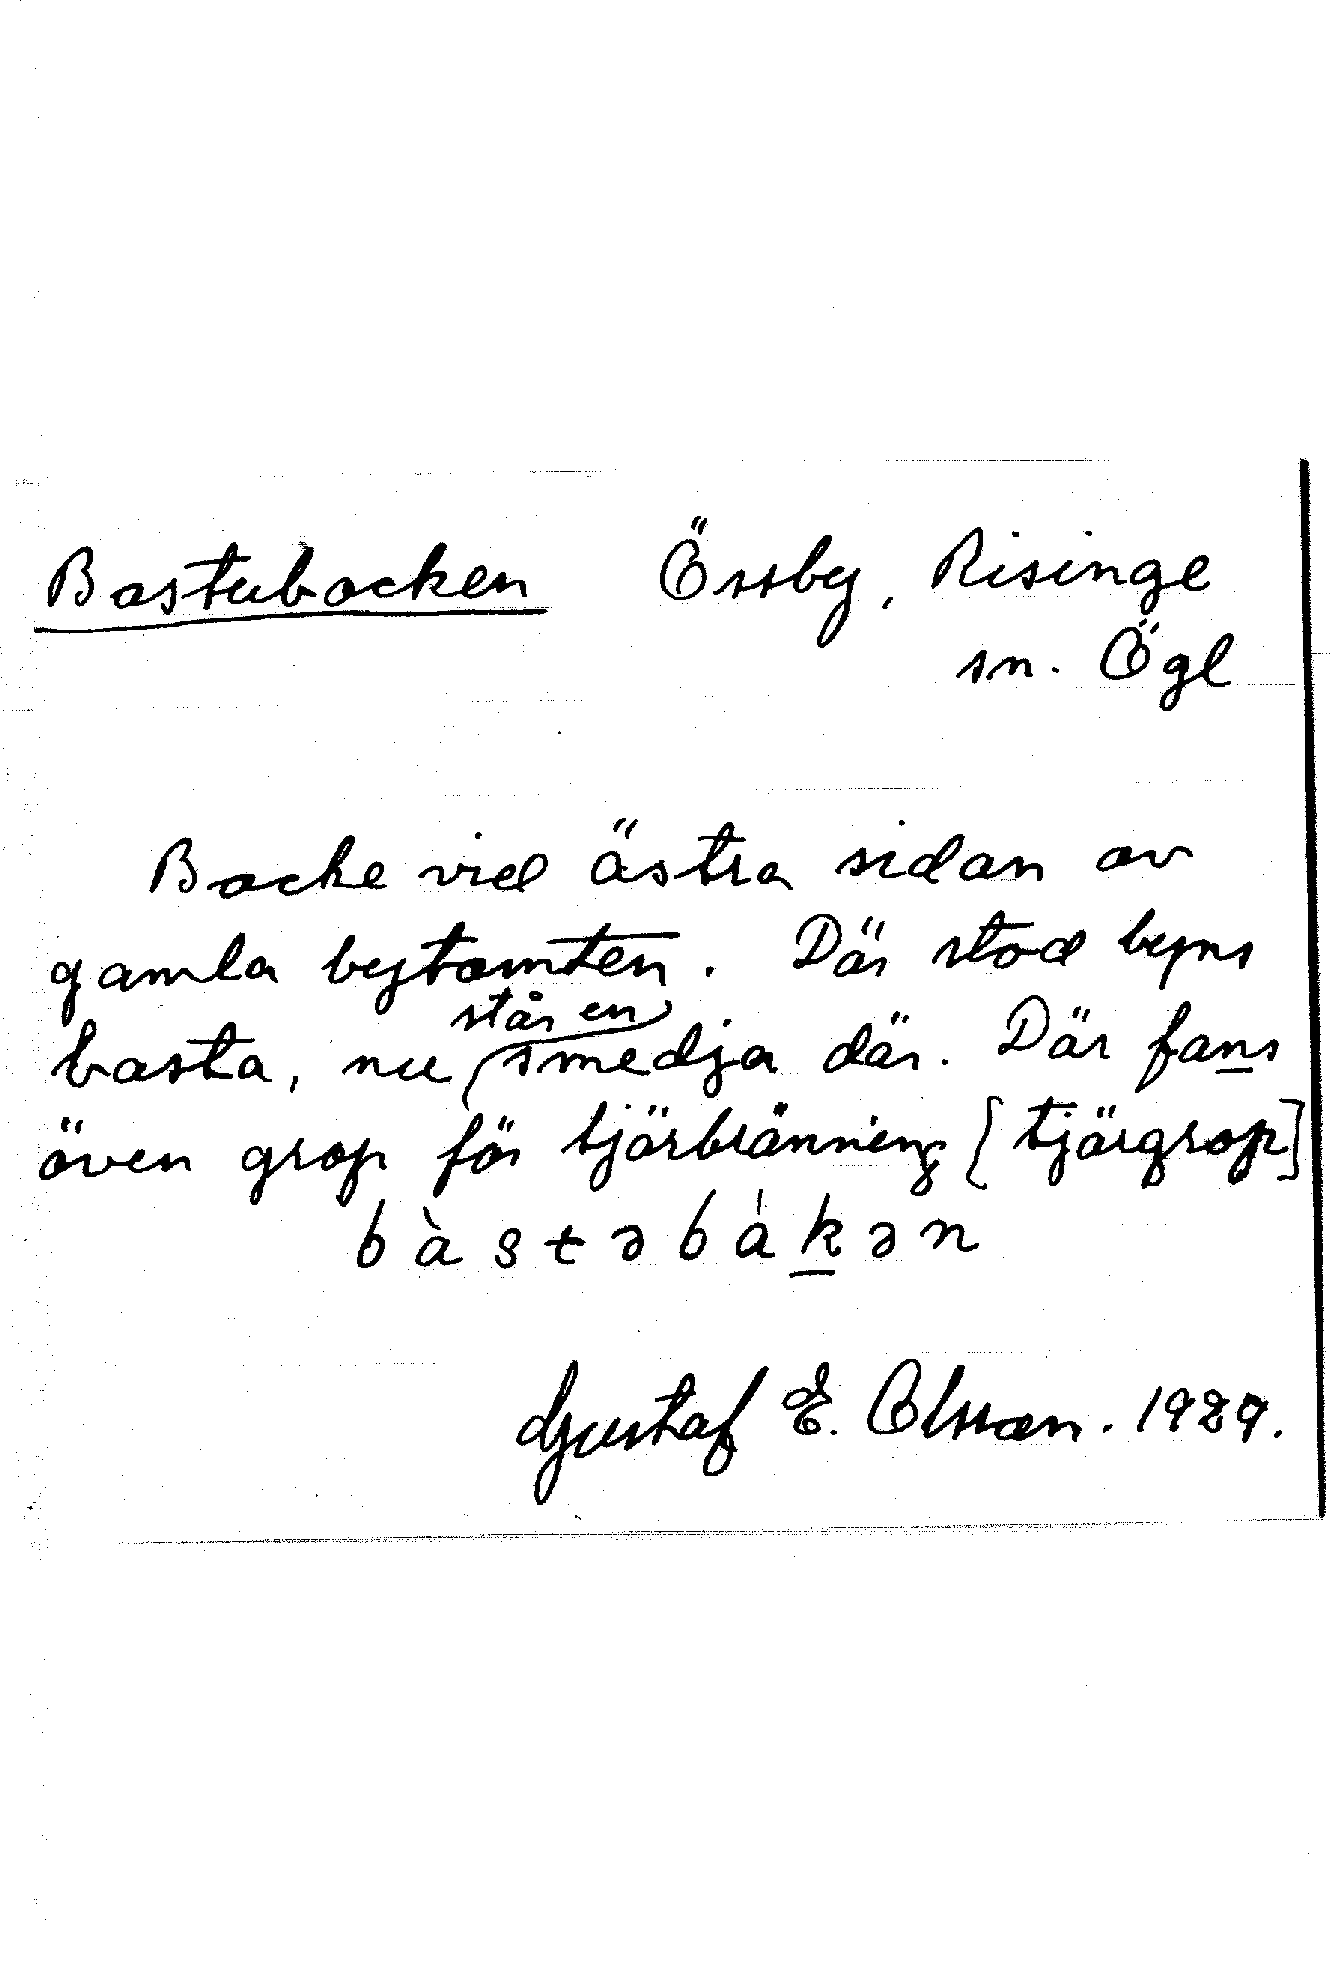 Bastubacken Össby, Risinge
sn. Ögl
Backe vid östra sidan av
gamla bytomten. Där stod byns
basta, nu står en smedja där. Där fans
även grop för tjärbränning [tjärgrop]
bàstəbákən
Gustaf E. Olsson. 1929.